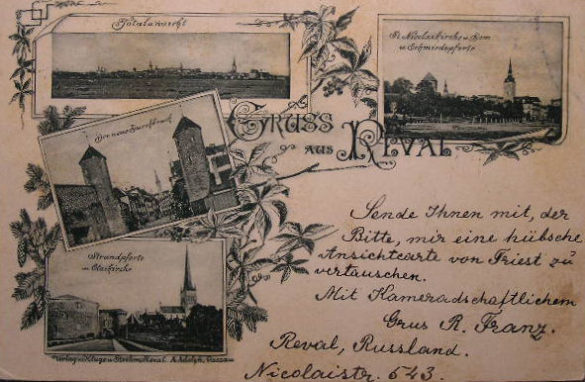 Totalansicht
St. Nicolaikirche u. Dom
u. Schmiedepforte
GRUSS
AUS REVAL
Strandpforte
u. Olaikirche
Sende Ihnen mit, der
Bitte, mir eine hübsche
Ansichtcarte von Triest zu
vertauschen.
Mit Kameradschaftlichem
Grus R. Franz.
Reval, Russland.
Nicolaistr. 543.
Verlag v. Kluge u. Ströhm, Reval. A. Adolph, Passau